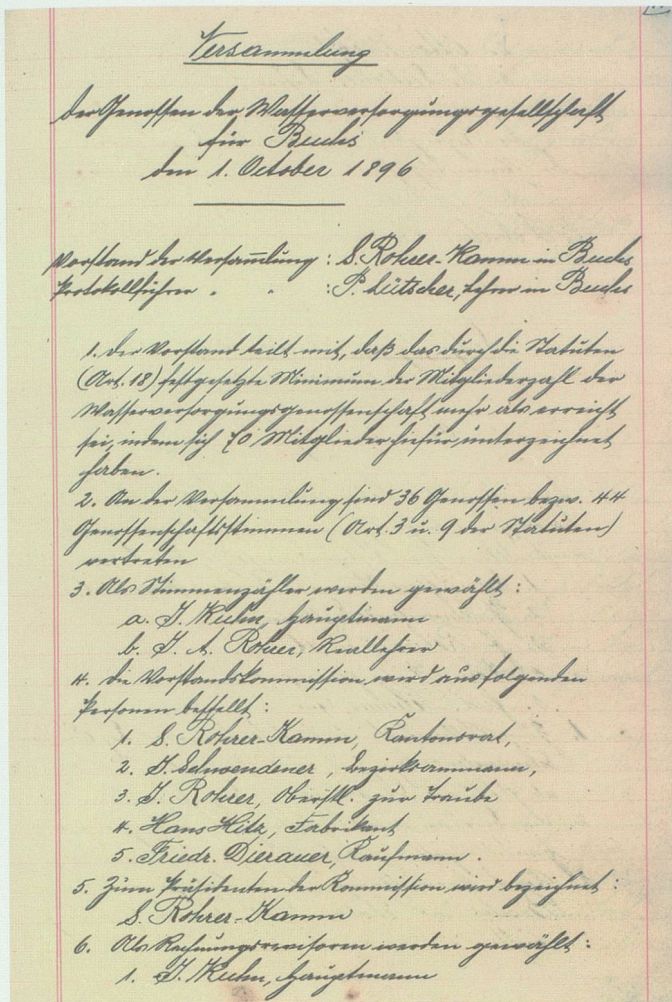 Versammlung
der Genossen der Wasserversorgungsgesellschaft
für Buchs
den 1. October 1896
Vorstand der Versam̅lung : S. Rohrer-Kamm in Buchs
Protokollführer " " : P. Lütscher, Lehrer in Buchs
1. Der Vorstand teilt mit, daß das durch die Statuten
(Art. 18) festgesetzte Minimum der Mitgliederzahl der
Wasserversorgungsgenossenschaft mehr als erreicht
sei, indem sich 70 Mitglieder hiefür unterzeichnet
haben.
2. An der Versammlung sind 36 Genossen bezw. 44
Genossenschaftsstimmen (Art. 3 u. 9 der Statuten)
vertreten
3. Als Stimmenzähler werden gewählt :
a. J. Kuhn, Hauptmann
b. J. A. Rohrer, Reallehrer
4. Die Vorstandskommission wird aus folgenden
Personen bestellt :
1. S. Rohrer-Kamm, Kantonsrat,
2. J. Schwendener, Bezirksammann,
3. J. Rohrer, Oberstl. zur Traube
4. Hans Hilty, Fabrikant
5. Friedr. Dierauer, Kaufmann.
5. Zum Präsidenten der Kommission wird bezeichnet :
S. Rohrer-Kamm
6. Als Rechnungsrevisoren werden gewählt :
1. J. Kuhn, Hauptmann